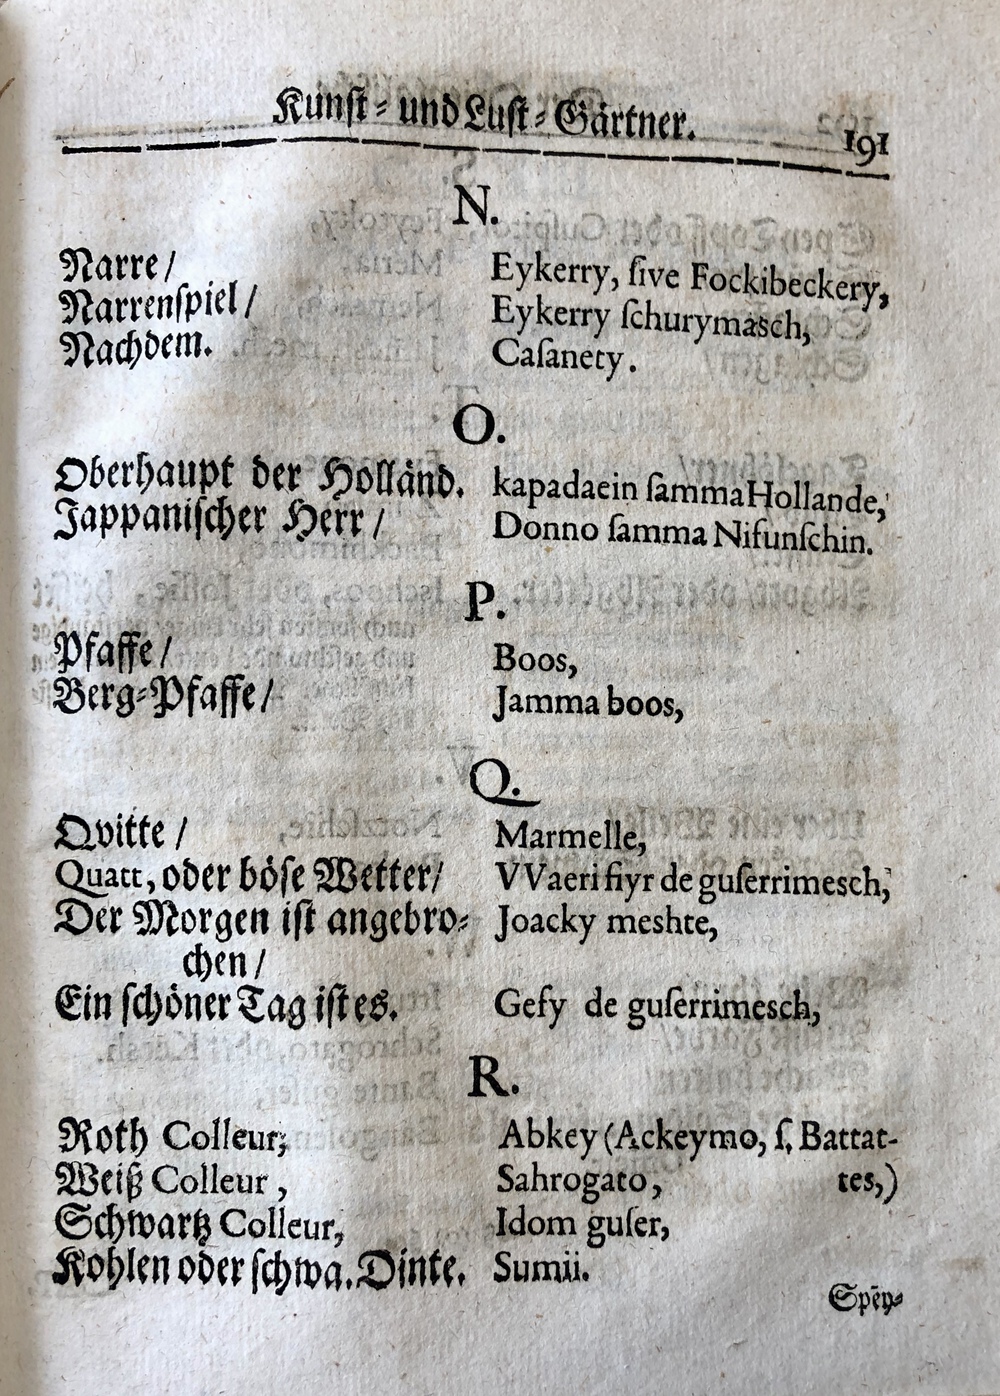 Kunſt- und Luſt-Gärtner. 191
N.
Narre/ Eykerry, ſive Fockibeckery,
Narrenſpiel/ Eykerry ſchurymasch,
Nachdem. Caſanety.
O.
Oberhaupt der Holländ. kapadaein ſamma Hollande,
Jappaniſcher Herr/ Donno ſamma Nifunſchin.
P.
Pfaffe/ Boos,
Berg-Pfaffe/ Jamma boos,
Q.
Qvitte/ Marmelle,
Quatt, oder böſe Wetter/ VVaeri fiyr de guſerrimesch,
Der Morgen iſt angebro- Joacky meshte,
chen/
Ein ſchöner Tag iſt es. Gefy de guſerrimesch,
R.
Roth Colleur, Abkey (Ackeymo, ſ, Battat-
Weiß Colleur, Sahrogato, tes,)
Schwartz Colleur, Idom guſer,
Kohlen oder ſchwa. Dinte. Sumii.
Spey-